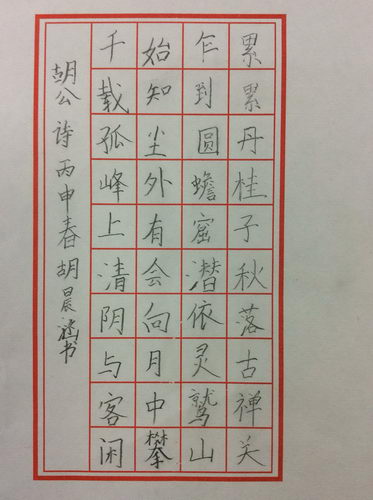 累累丹桂子秋落古禅关
乍到圆蟾窟潜依灵鹫山
始知尘外有会向月中攀
千载孤峰上清阴与客闲
胡公诗丙申春胡晨书